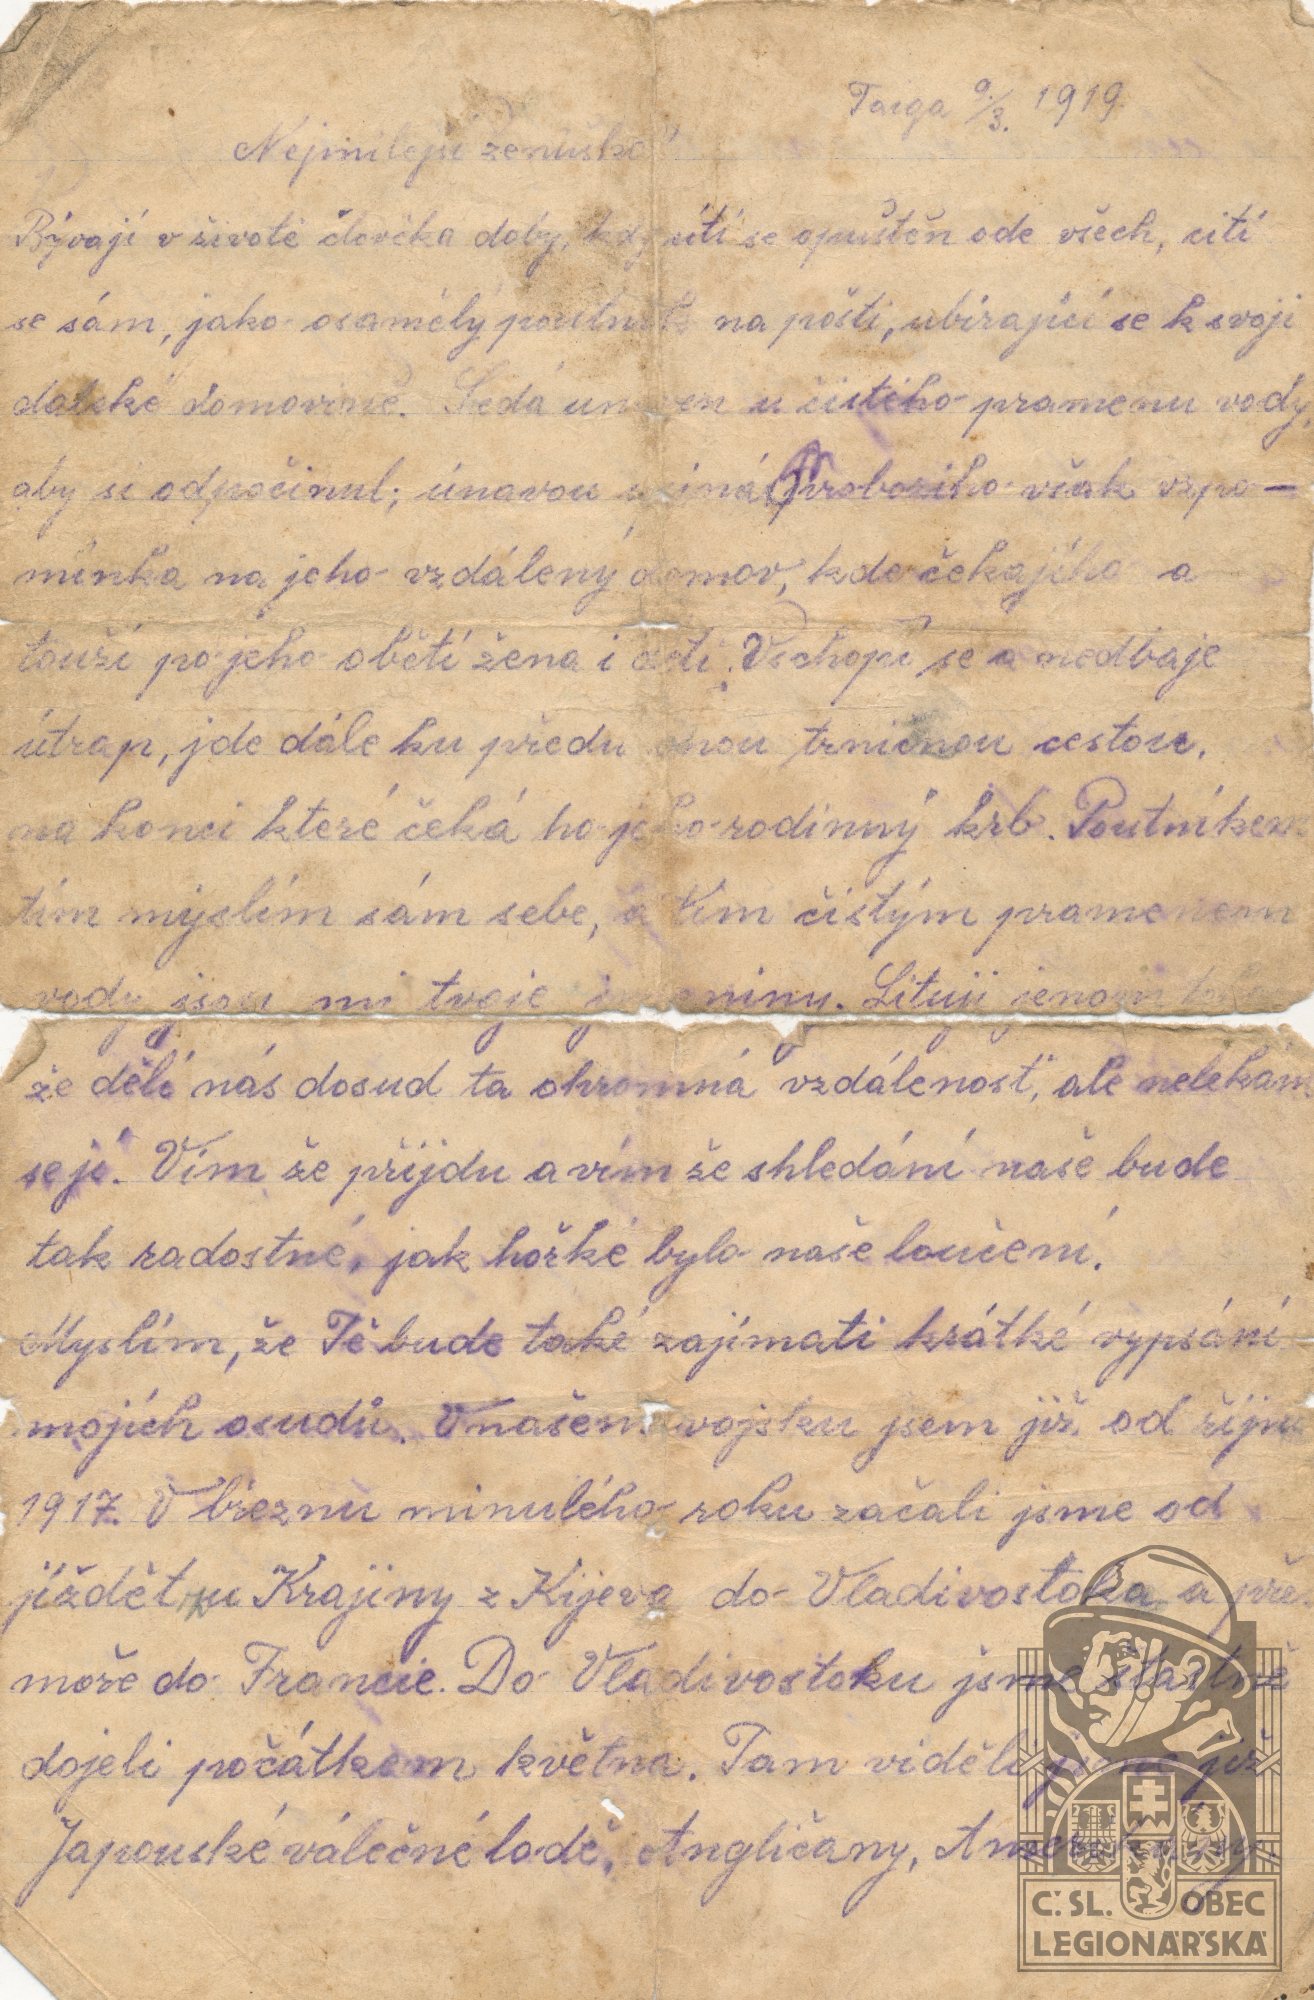 Taiga 9/3. 1919
Nejmilejší ženuško!
Bývají v životě člověka doby, kdy cítí se opuštěn ode všech, cítí
se sám, jako osamělý poutník na poušti, ubírající se k svoji
daleké domovině. Sedá unaven u čistého pramenu vody,
aby si odpočinul; únavou usíná, probouzí ho však vzpo-
mínka na jeho vzdálený domov, kde čekají ho a
touží po jeho obětí žena i děti. Vschopí se a nedbaje
útrap, jde dále ku předu onou trnitou cestou,
na konci které čeká ho jeho rodinný krb. Poutníkem
tím myslím sám sebe, a tím čistým pramenem
vody jsou mi tvoje Lituji jenom toho
že dělí nás dosud ta ohromná vzdálenosť, ale nelekám
se jí. Vím že přijdu a vím že shledání naše bude
tak radostné, jak hořké bylo naše loučení.
Myslím, že Tě bude také zajímati krátké vypsání
mojích osudů. V našem vojsku jsem již od října
1917. V březnu minulého roku začali jsme od
jíždět z u Krajiny z Kijeva do Vladivostoka a pře
moře do Francie. Do Vladivostoku jsme šťastně
dojeli počátkem května. Tam viděli jsme již
Japonské válečné lodě, Angličany, Američany,
Č. SL. OBEC
LEGIONÁŘSKÁ